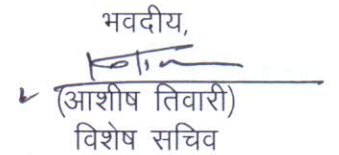 भवदीय,
(आशीष तिवारी)
विशेष सचिव